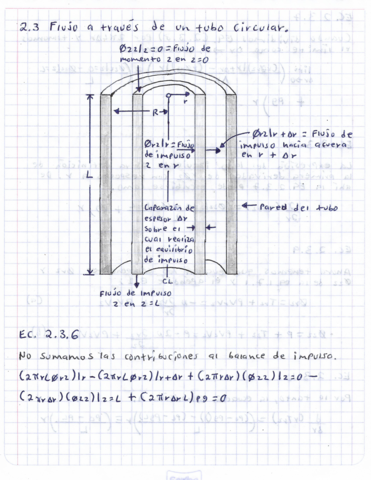 2.3 Flujo a través de un tubo circular.
Øzz|z=0 = Flujo de
momento z en z=0
r
R
Ørz|r = Flujo
de impulso
z en r
Ørz|r+Δr = Flujo de
impulso hacia afuera
en r + Δr
L
Caparazón de
espesor Δr
sobre el
cual realiza
el equilibrio
de impulso
Pared del tubo
CL
Flujo de impulso
z en z=L
EC. 2.3.6
No sumamos las contribuciones al balance de impulso.
(2πrLØrz)|r-(2πrLØrz)|r+Δr+(2πrΔr)(Øzz)|z=0-
(2πrΔr)(Øzz)|z=L+(2πrΔrL)ρg=0